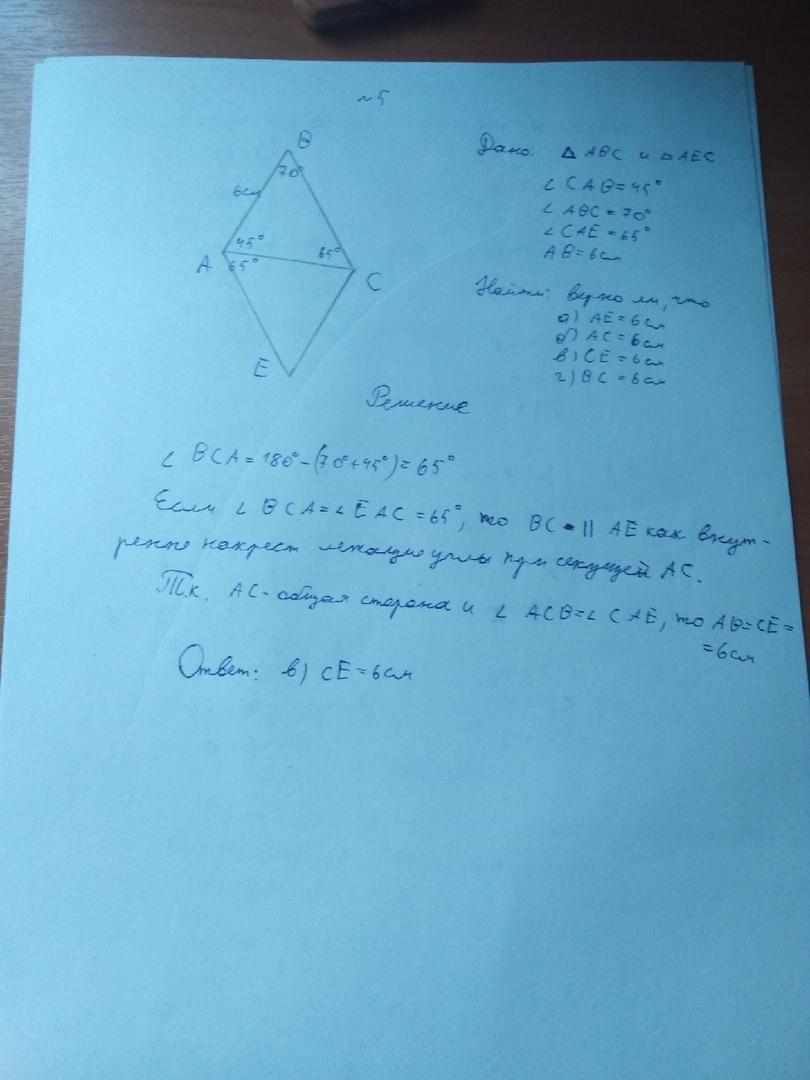 №5
B
70°
6см
45°
65°
A
65°
C
E
Дано: Δ ABC и Δ AEC
∠ CAB = 45°
∠ ABC = 70°
∠ CAE = 65°
AB = 6см
Найти: верно ли, что
а) AE = 6см
б) AC = 6см
в) CE = 6см
г) BC = 6см
Решение
∠ BCA = 180° - (70° + 45°) = 65°
Если ∠ BCA = ∠ EAC = 65°, то BC || AE как внут-
ренне накрест лежащие углы при секущей AC.
Т.к. AC - общая сторона и ∠ ACB = ∠ CAE, то AB = CE =
= 6см
Ответ: в) CE = 6см